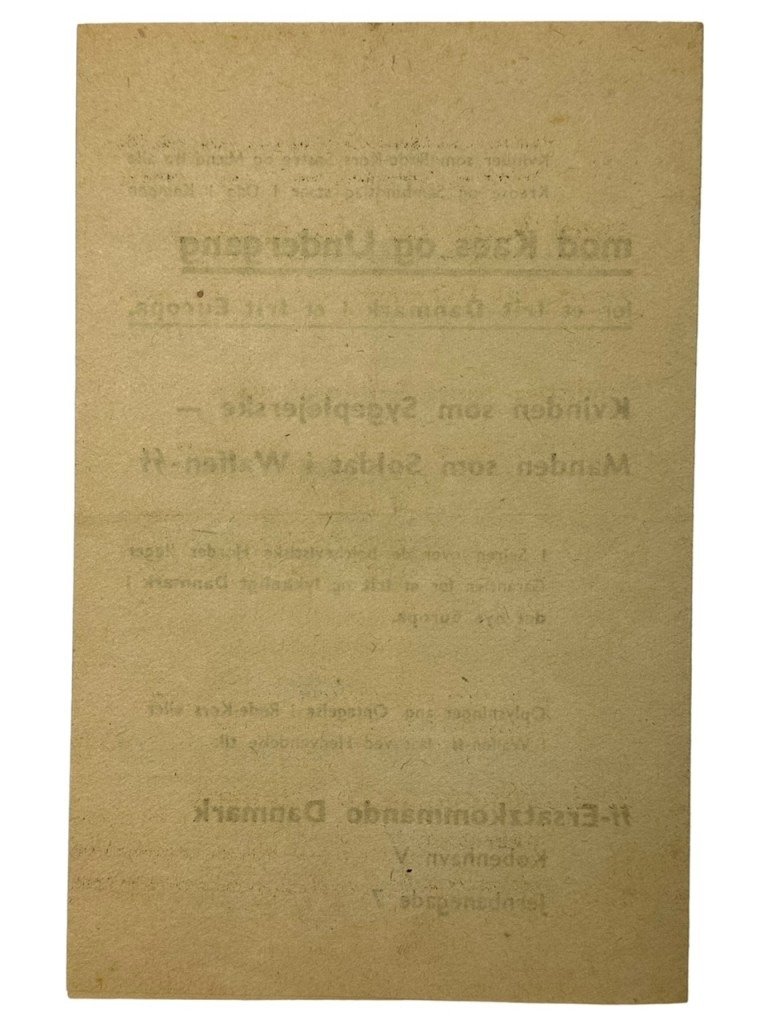 Kvinder som Røde-Kors Søstre og Mænd fra alle
Kredse og Samfundslag staar i Dag i Kampen
mod Kaos og Undergang
for et frit Danmark i et frit Europa.
Kvinden som Sygeplejerske —
Manden som Soldat i Waffen-ϟϟ
I Sejren over de bolschevistiske Horder ligger
Garantien for et frit og lykkeligt Danmark i
det nye Europa.
Oplysninger ang. Optagelse i Røde-Kors eller
i Waffen-ϟϟ ved Henvendelse til
ϟϟ-Ersatzkommando Danmark
København V
Jernbanegade 7